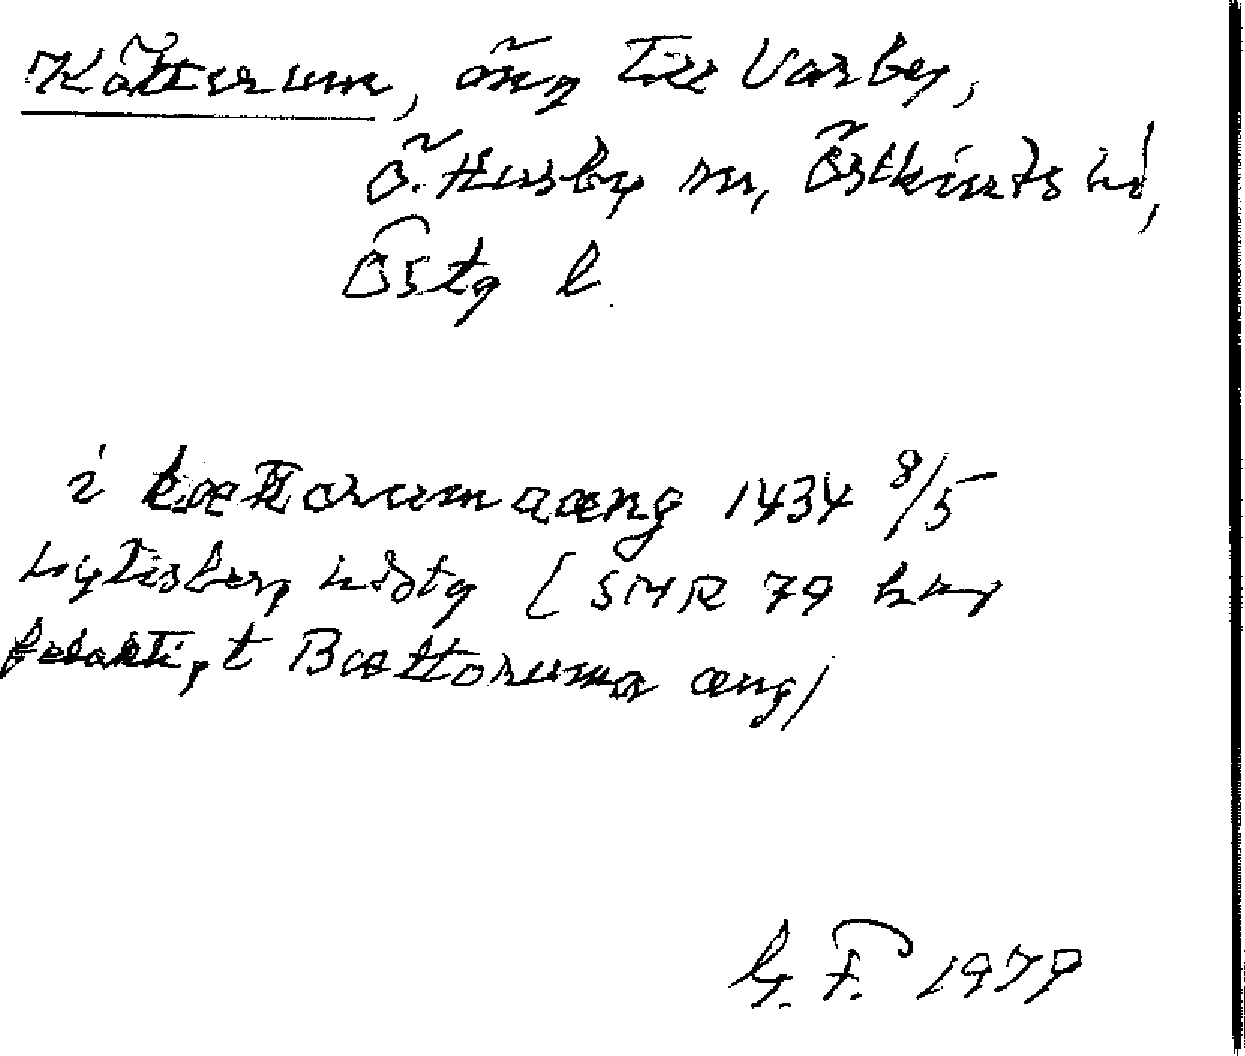 Kättorum, äng till Varby,
Ö. Husby sn, Östkinds hd,
Östg l.
i kættorumaæng 1434 8/5
hdstg [SMR 79 har
felaktigt Bættoruma æng/
G. F. 1979